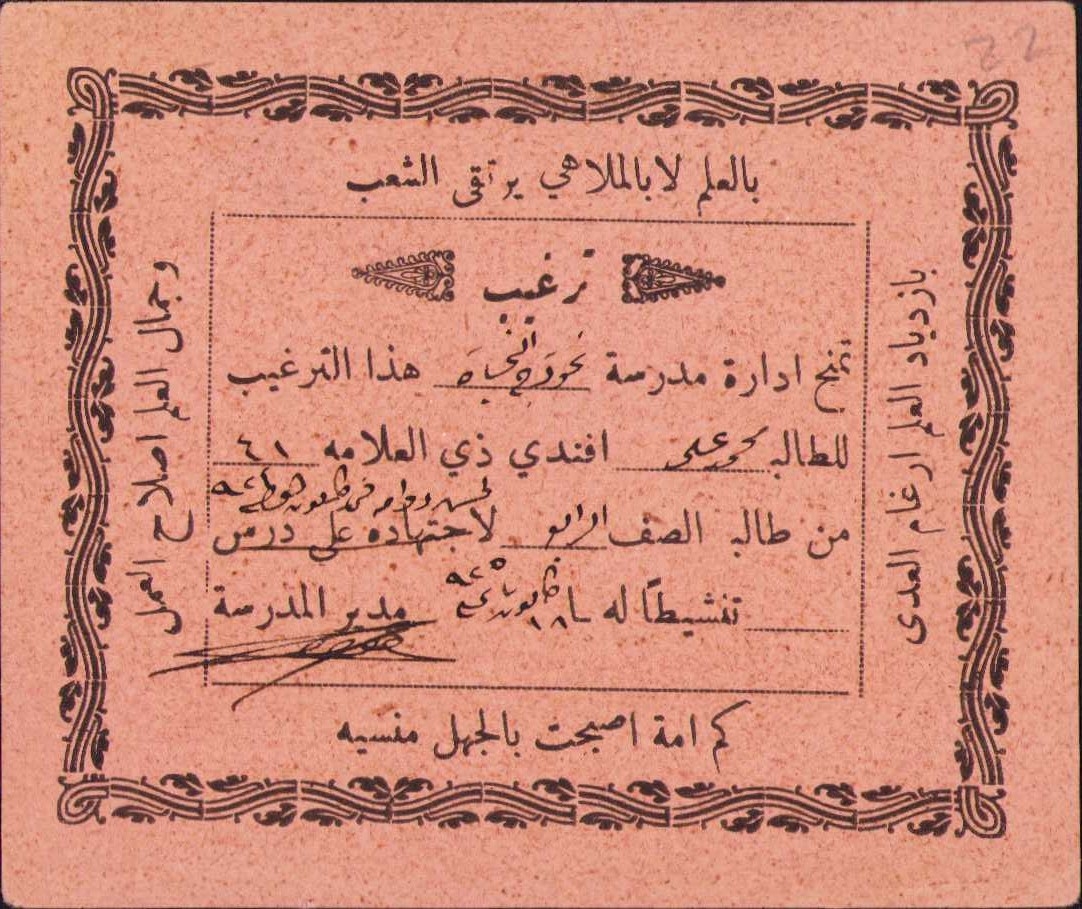 22
بالعلم لا بالملاهي يرتقى الشعب
بازدياد العلم ارغام العدى
وجمال العلم اصلاح العمل
ترغيب
تمنح ادارة مدرسة نموذج الحياة هذا الترغيب
للطالب محمد علي افندي ذي العلامه ٤١
من طالب الصف الرابع لاجتهاده على درس
تنشيطاً له ١٨ كانون مدير المدرسة
كم امة اصبحت بالجهل منسيه